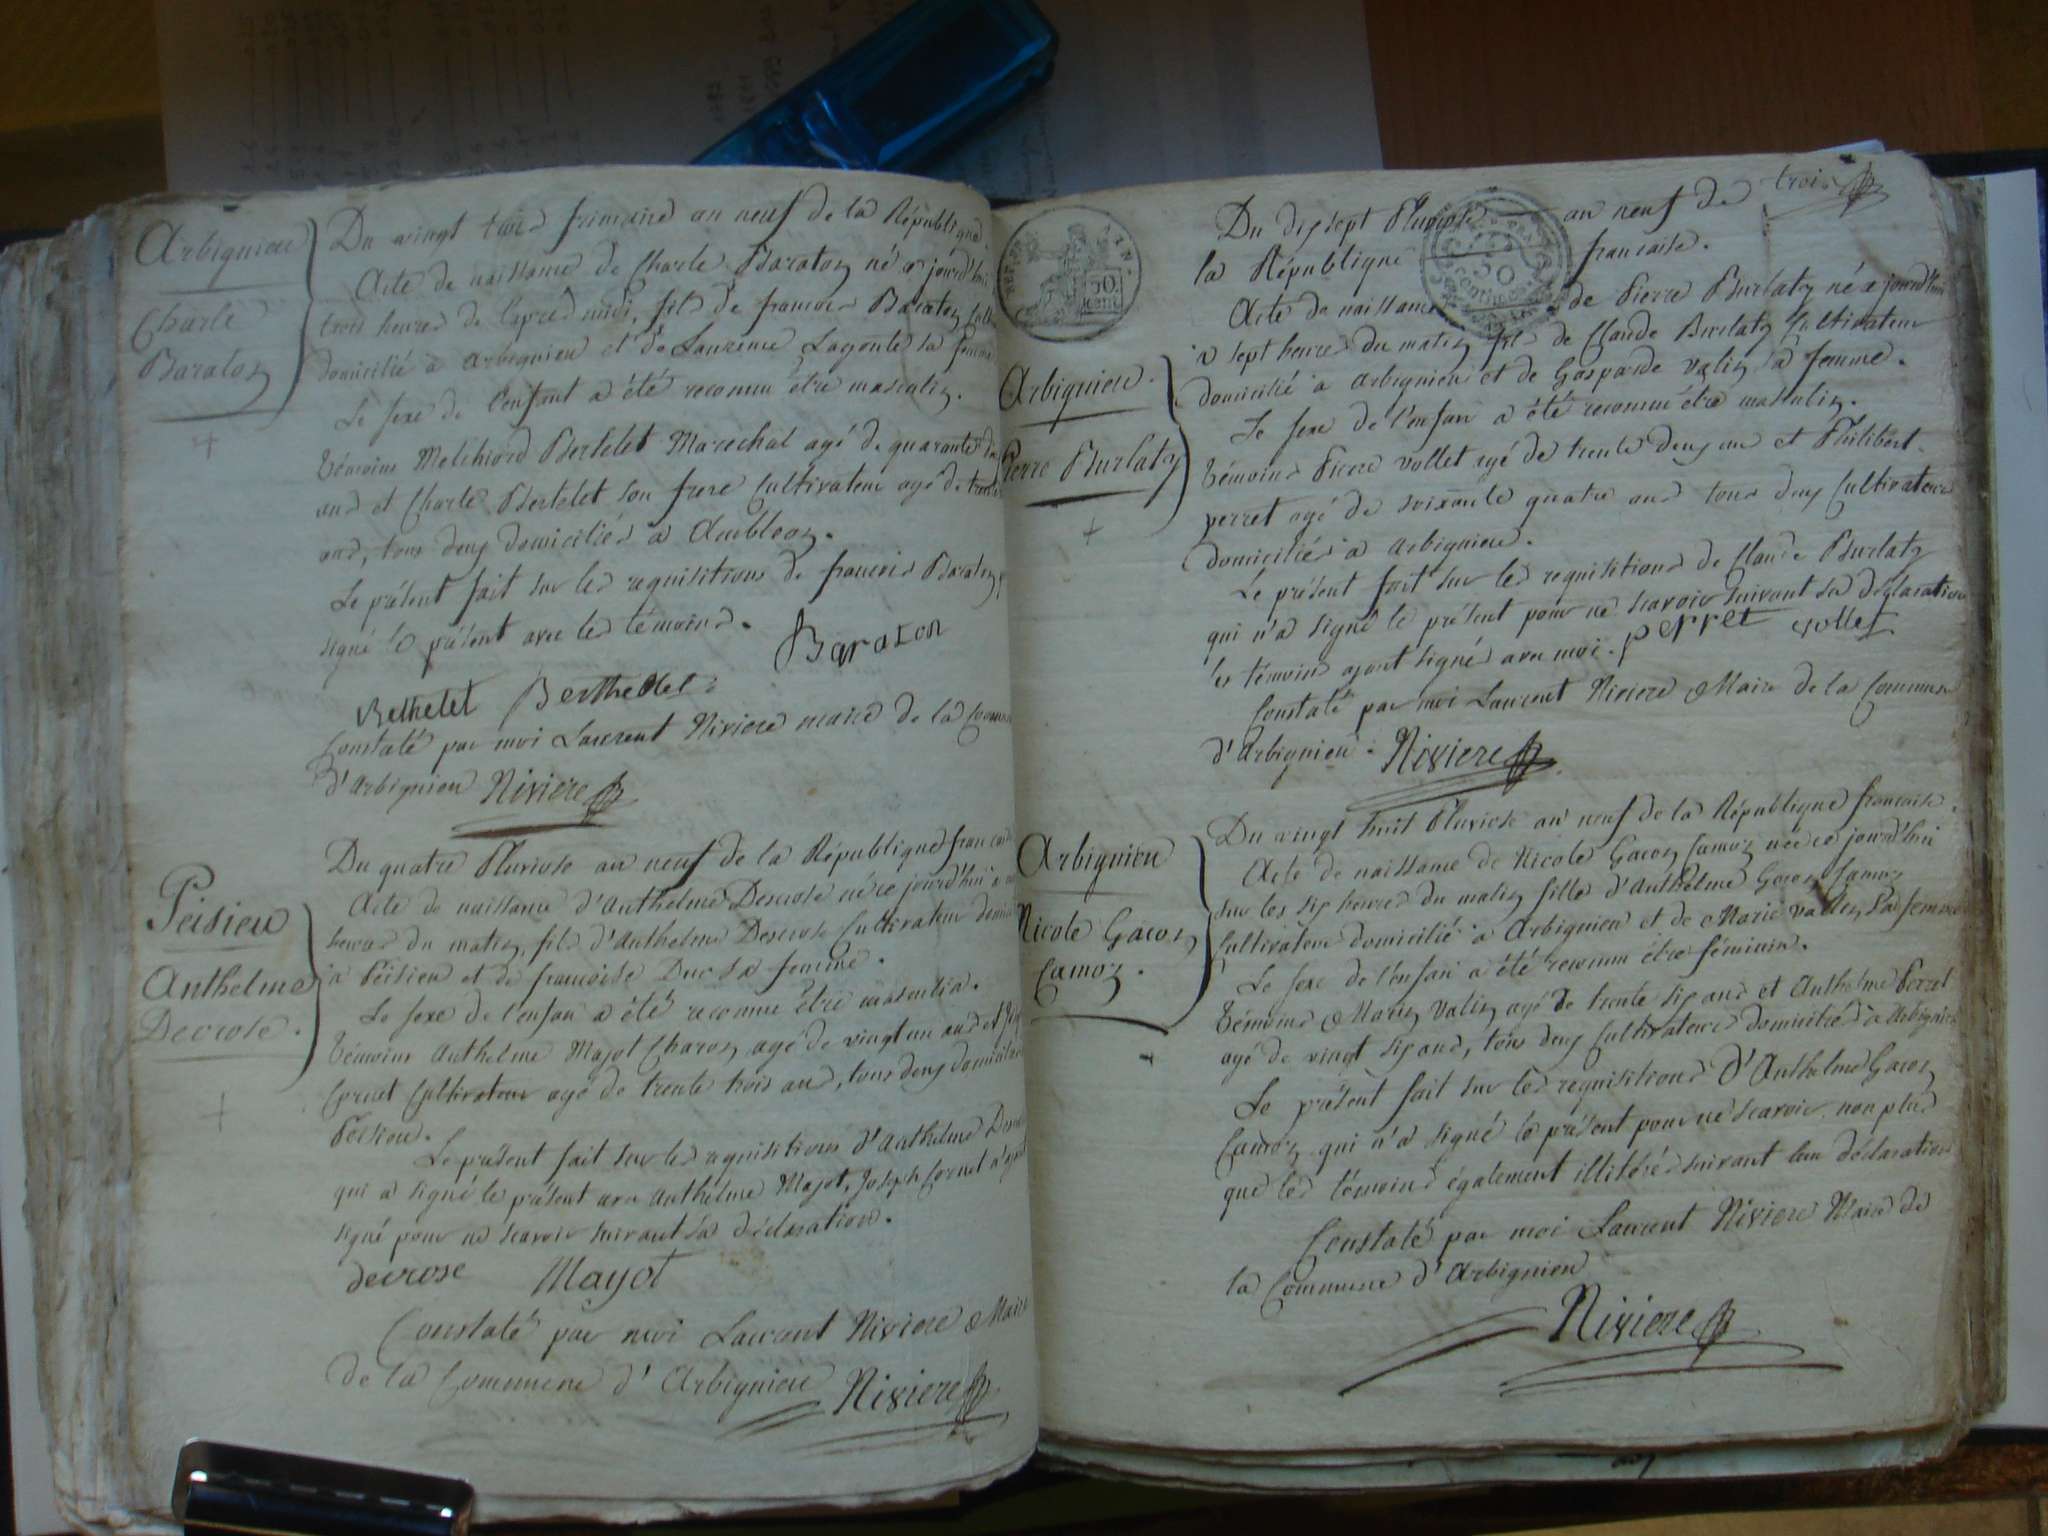 Arbignieu
Charle
Baraton
Du vingt trois frimaire an neuf de la République
Acte de naissance de Charle Baraton né ce jourd'hui
trois heures de l'apres midi, fils de francois Baraton
domicilié à Arbignieu et de Laurence sa femme
Le sexe de l'enfant a été reconnu être masculin.
témoins Melchiord Bertelet Marechal agé de quarante
ans et Charle Bertelet son frere Cultivateur agé de trente
ans, tous deux domiciliés à Ambleon.
Le présent fait sur les requisitions de francois Baraton
signé le présent avec les témoins.
Baraton
Bethelet Berthelet
Constaté par moi Laurent Niviere maire de la Commune
d'Arbignieu Niviere
Peisieu
Anthelme
Decrose.
Du quatre Pluviose an neuf de la République francaise
Acte de naissance d'Anthelme Descrose né ce jourd'hui à
heures du matin, fils d'Anthelme Descrose Cultivateur
à Peisieu et de francoise Duc sa femme.
Le sexe de l'enfan a été reconnu être masculin.
témoins Anthelme Majot Charon agé de vingt un ans et
Cornet Cultivateur agé de trente trois ans, tous deux domiciliés
Peisieu.
Le présent fait sur les requisitions d'Anthelme
qui a signé le présent avec Anthelme Majot, Joseph Cornet n'ayant
signé pour ne scavoir suivant sa déclaration.
decrose Mayot
Constaté par moi Laurent Niviere Maire
de la Commune d'Arbignieu Niviere
trois
50
cent
50
centimes
Du dixsept Pluviose an neuf de
la République francaise.
Arbignieu.
Pierre Burlatz
Acte de naissance de Pierre Burlatz né ce jourd'hui
à sept heures du matin fils de Claude Burlatz Cultivateur
domicilié à Arbignieu et de Gasparde Valin sa femme.
Le sexe de l'enfan a été reconnu être masculin.
témoins Pierre Vollet agé de trente deux ans et Philibert
perret agé de soixante quatre ans tous deux Cultivateurs
domiciliés à Arbignieu.
Le présent fait sur les requisitions de Claude Burlatz
qui n'a signé le présent pour ne scavoir suivant sa déclaration
les témoins ayant signés avec moi. perret vollet
Constaté par moi Laurent Niviere Maire de la Commune
d'Arbignieu. Niviere
Arbignieu
Nicole Gacon
Camoz.
Du vingt huit Pluviose an neuf de la République francaise.
Acte de naissance de Nicole Gacon Camoz née ce jourd'hui
sur les six heures du matin fille d'Anthelme Gacon Camoz
Cultivateur domicilié à Arbignieu et de Marie Vallin sa femme
Le sexe de l'enfan a été reconnu être féminin.
témoins Marin Valin agé de trente six ans et Anthelme Perret
agé de vingt six ans, tous deux Cultivateurs domiciliés à Arbignieu
Le présent fait sur les requisitions d'Anthelme Gacon
Camoz qui n'a signé le présent pour ne scavoir non plus
que les témoins également illitérés suivant leur déclaration
Constaté par moi Laurent Niviere Maire de
la Commune d'Arbignieu
Niviere